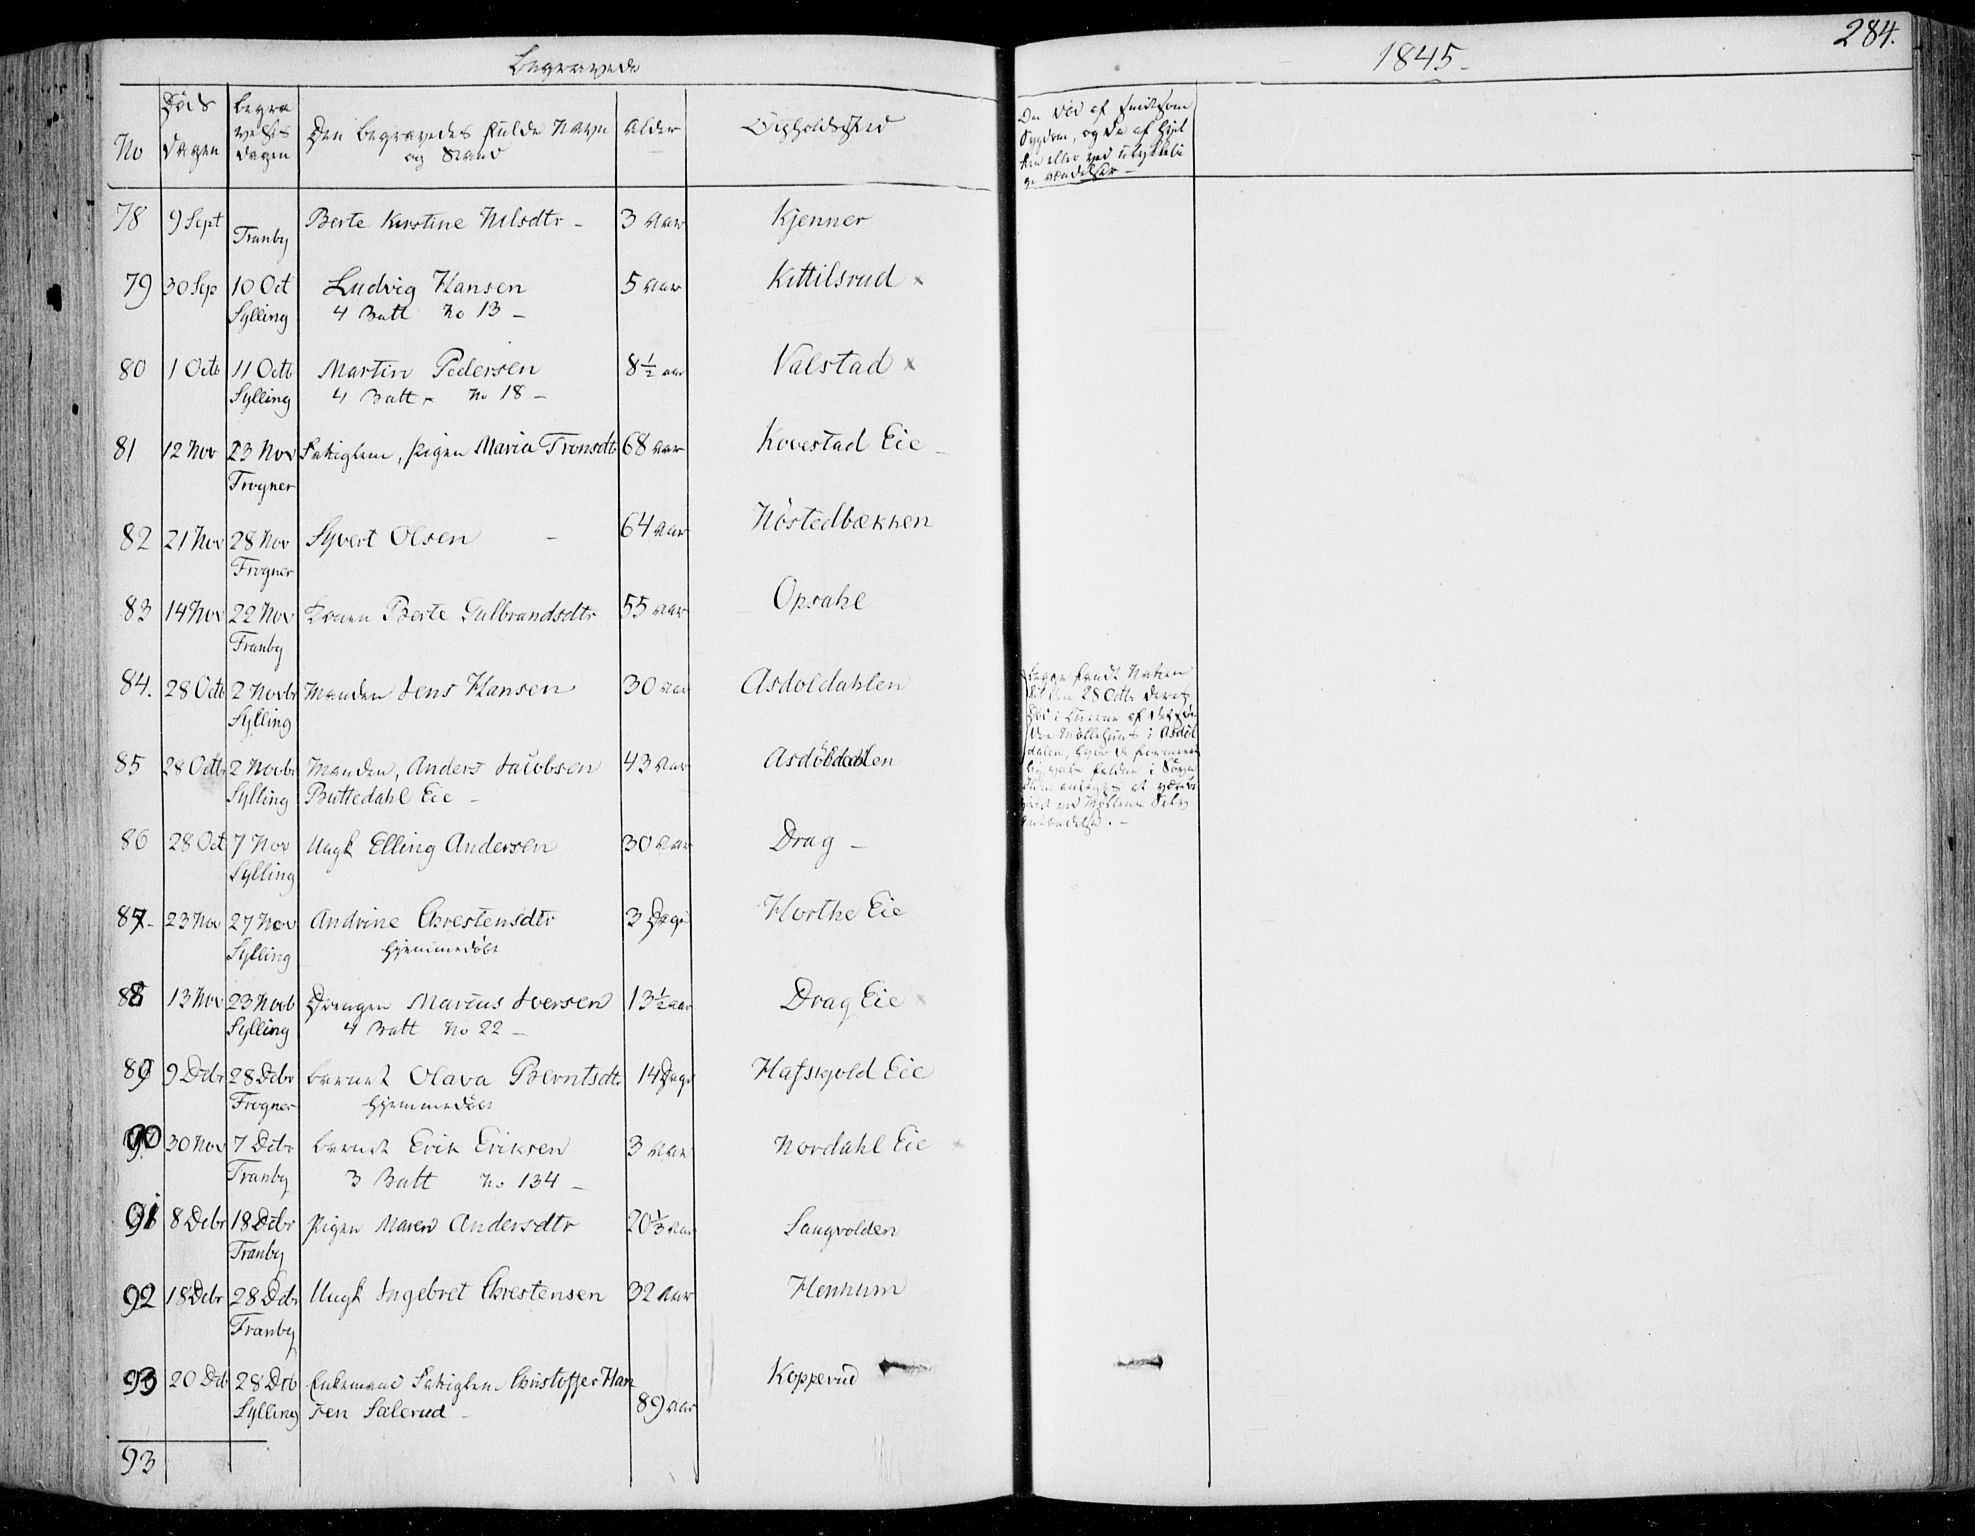 Begravede
1845.
284.
No
Døds
dagen
Begra
velses
dagen
Den begravedes fulde Navn
og Stand
Alder
Opholdssted
Om død af smitsom
Sygdom, og da af hvil
ken eller ved ulykkeli
ge Hændelser
78 9 Sept Berte Kirstine Nilsdtr - 3 Aar Kjenner
Tranby
79 30 Sep 10 Oct Ludvig Hansen 5 Aar Kittilsrud x
Sylling 4 Batt No 13 -
80 1 Octb 11 Octb Martin Pedersen 8½ aar Valstad x
Sylling 4 Batt No 18 -
81 12 Nov 23 Nov Fattiglem, Pigen Maria Tronsdtr 68 Aar Kovestad Eie
Frogner
82 21 Nov 28 Nov Syvert Olsen - 64 Aar Høstedbækken
Frogner
83 14 Nov 22 Nov Konen Berte Gulbrandsdtr 55 Aar Opsahl
Tranby
84. 28 Octb 2 Novbr Manden Jens Hansen 30 Aar Asdoldahlen
Sylling
85 28 Octbr 2 Novbr Manden, Anders Jacobsen 43 Aar Asdøldahlen
Sylling Buttedahl Eie -
Begge fandt Natten
til den 28 Octb deres
Død i af det
Møllehuus i Asdøl
dalen, hvor de
86 28 Oct 7 Nov Ungk Elling Andersen 30 Aar Drag -
Sylling
87. 23 Nov 27 Nov Andrine Chrestensdtr 3 Dage Horthe Eie
Sylling hjemmedøbt
88 13 Nov 23 Novb Drengen Marius Iversen 13½ aar Drag Eie x
Sylling 4 Batt No 22 -
89 9 Debr 28 Debr barnet Olava Berntsdtr 14 Dage Hafskjold Eie
Frogner hjemmedøbt
90 30 Nov 7 Debr barnet Erik Eriksen 3 Aar Nordahl Eie x
Tranby 3 Batt No 134 -
91 8 Debr 18 Debr Pigen Maren Andersdtr 20⅓ Aar Langvolden
Tranby
92 18 Debr 28 Debr Ungk Ingebret Chrestensen 32 Aar Hennum
Tranby
93 20 Deb 28 Deb Enkemand Fattiglem Christoffer Han Kopperud
Sylling sen Sælerud - 89 Aar
93